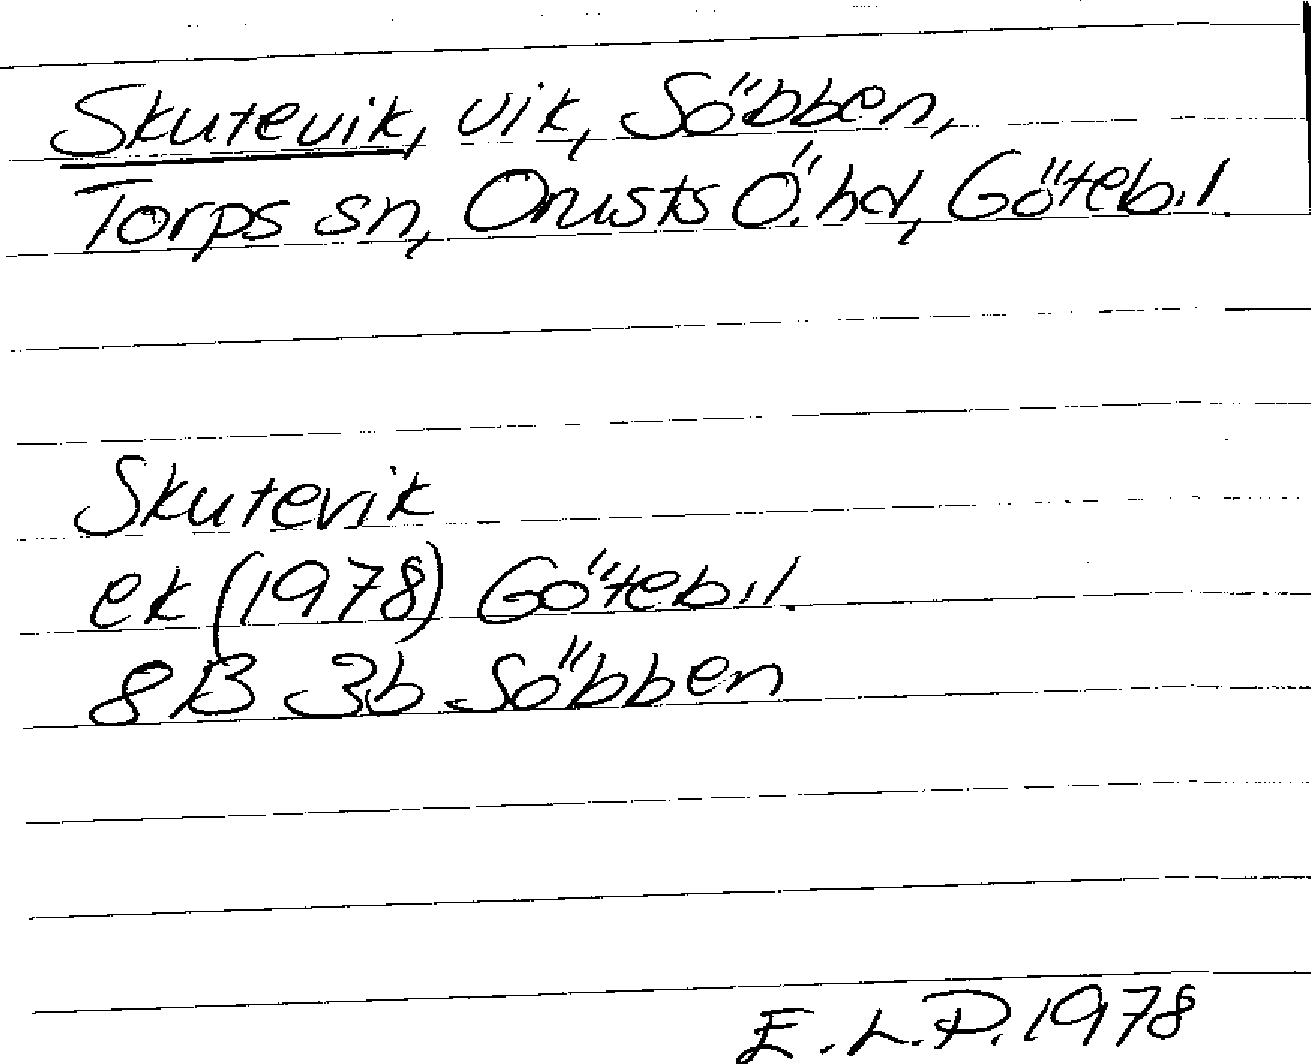 Skutevik, vik, Söbben,
Torps sn, Orusts Ö. hd, Göteb.l.
Skutevik
ek (1978) Göteb.l.
8B 3b Söbben
E.L.P. 1978